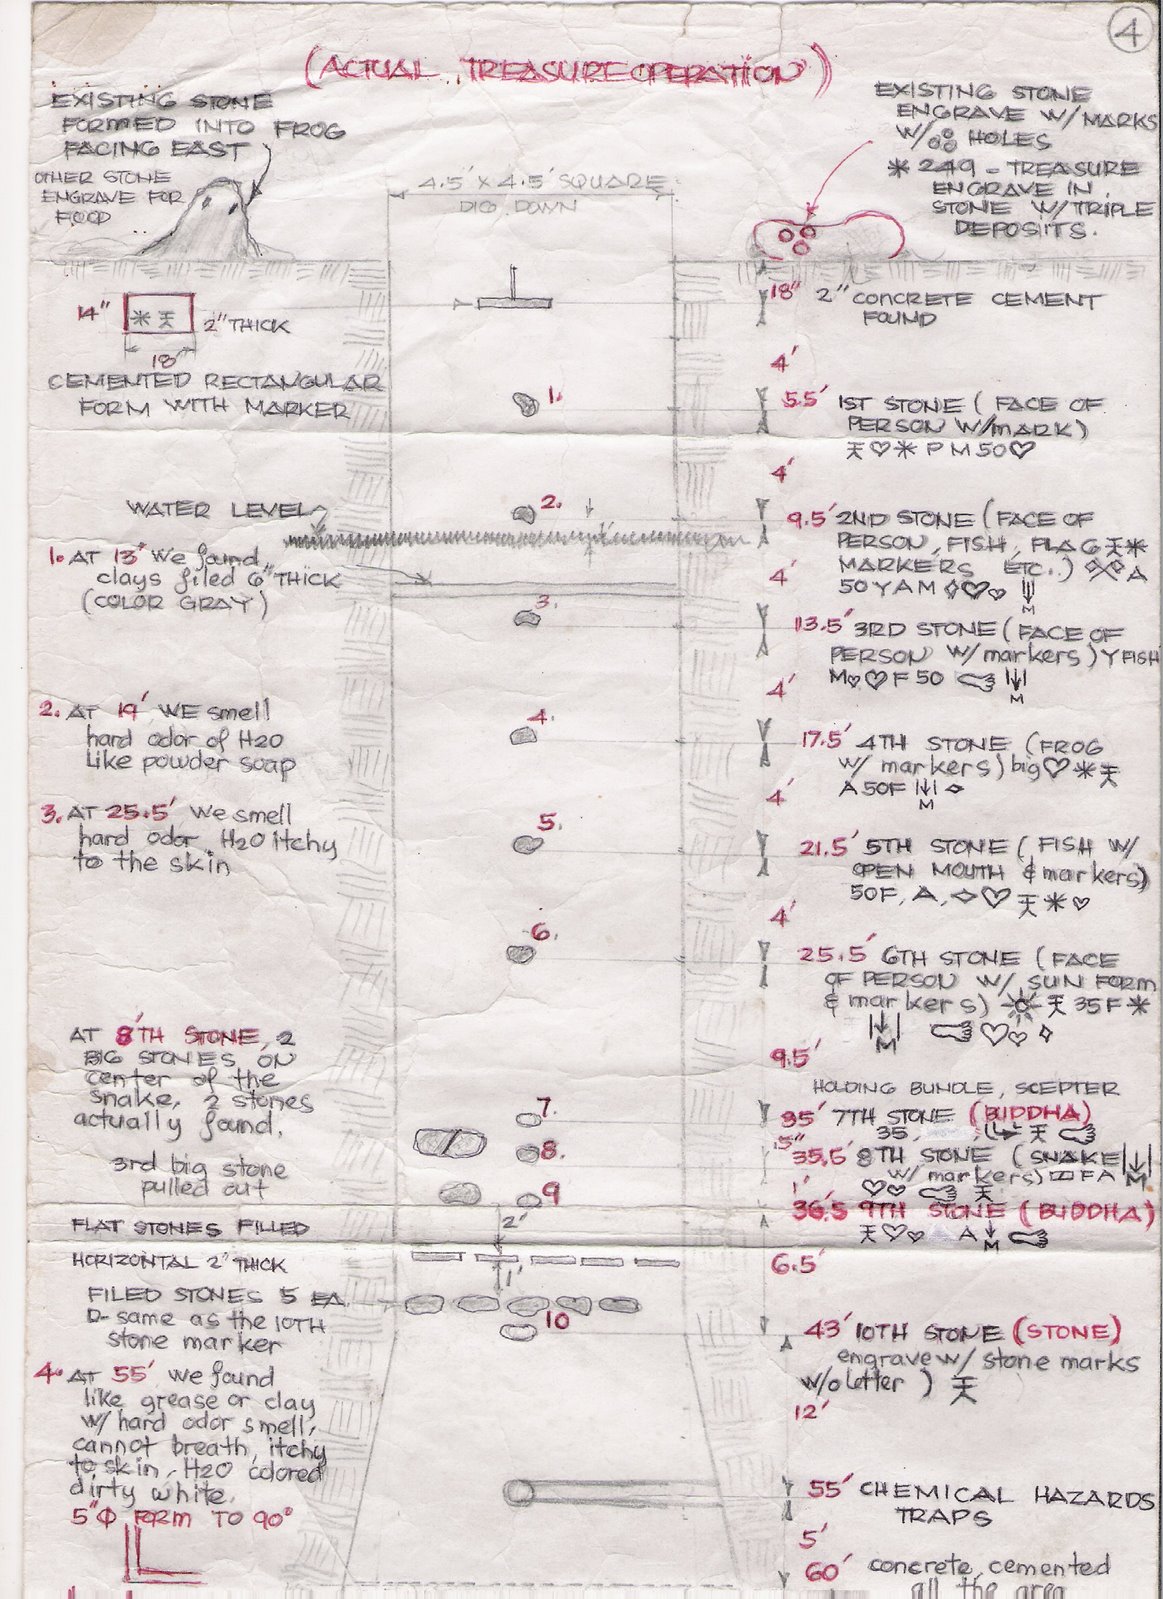 4
(ACTUAL TREASURE OPERATION)
EXISTING STONE
FORMED INTO FROG
FACING EAST
OTHER STONE
ENGRAVE FOR
FLOOD
4.5' X 4.5' SQUARE
DIG DOWN
EXISTING STONE
ENGRAVE W/ MARKS
W/ HOLES
* 249 - TREASURE
ENGRAVE IN
STONE W/ TRIPLE
DEPOSITS.
14"
2" THICK
18"
CEMENTED RECTANGULAR
FORM WITH MARKER
18" 2" CONCRETE CEMENT
FOUND
4'
1.
5.5' 1ST STONE ( FACE OF
PERSON W/MARK)
天♡* P M 50♡
4'
WATER LEVEL
2.
9.5' 2ND STONE (FACE OF
PERSON, FISH, FLAG 天*
MARKERS ETC..) ◇◇ A
50 Y A M ◇♡♡ M
4'
1. AT 13" We found
clays filed 6" THICK
(COLOR GRAY)
3.
13.5' 3RD STONE (FACE OF
PERSON W/ markers) Y FISH
M♡♡ F 50 M
4'
2. AT 19' WE smell
hard odor of H2O
like powder soap
4.
17.5' 4TH STONE (FROG
W/ markers) big♡*天
A 50F M ◇
4'
3. AT 25.5' We smell
hard odor H2O itchy
to the skin
5.
21.5' 5TH STONE ( FISH W/
OPEN MOUTH & markers)
50F, A, ◇♡天*♡
4'
6.
25.5' 6TH STONE (FACE
OF PERSON W/ SUN FORM
& markers) ☼天 35 F *
M ♡♡ ◇
9.5'
AT 8'TH STONE, 2
BIG STONES ON
center of the
snake, 2 stones
actually found.
3rd big stone
pulled out
HOLDING BUNDLE, SCEPTER
7.
35' 7TH STONE (BUDDHA)
35, 天
.5"
8.
35.5' 8TH STONE (SNAKE
W/ markers) F A M
1'
♡♡ 天
9
36.5 9TH STONE (BUDDHA)
天♡♡ A M
2'
FLAT STONES FILLED
HORIZONTAL 2" THICK
1'
6.5'
FILED STONES 5 EA.
D- same as the 10TH
stone marker
10
43' 10TH STONE (STONE)
engrave w/ stone marks
w/o letter ) 天
12'
4. AT 55' we found
like grease or clay
w/ hard odor smell,
cannot breath, itchy
to skin, H2O colored
dirty white.
5"Φ FORM TO 90°
55' CHEMICAL HAZARDS
TRAPS
5'
60' concrete cemented
all the area